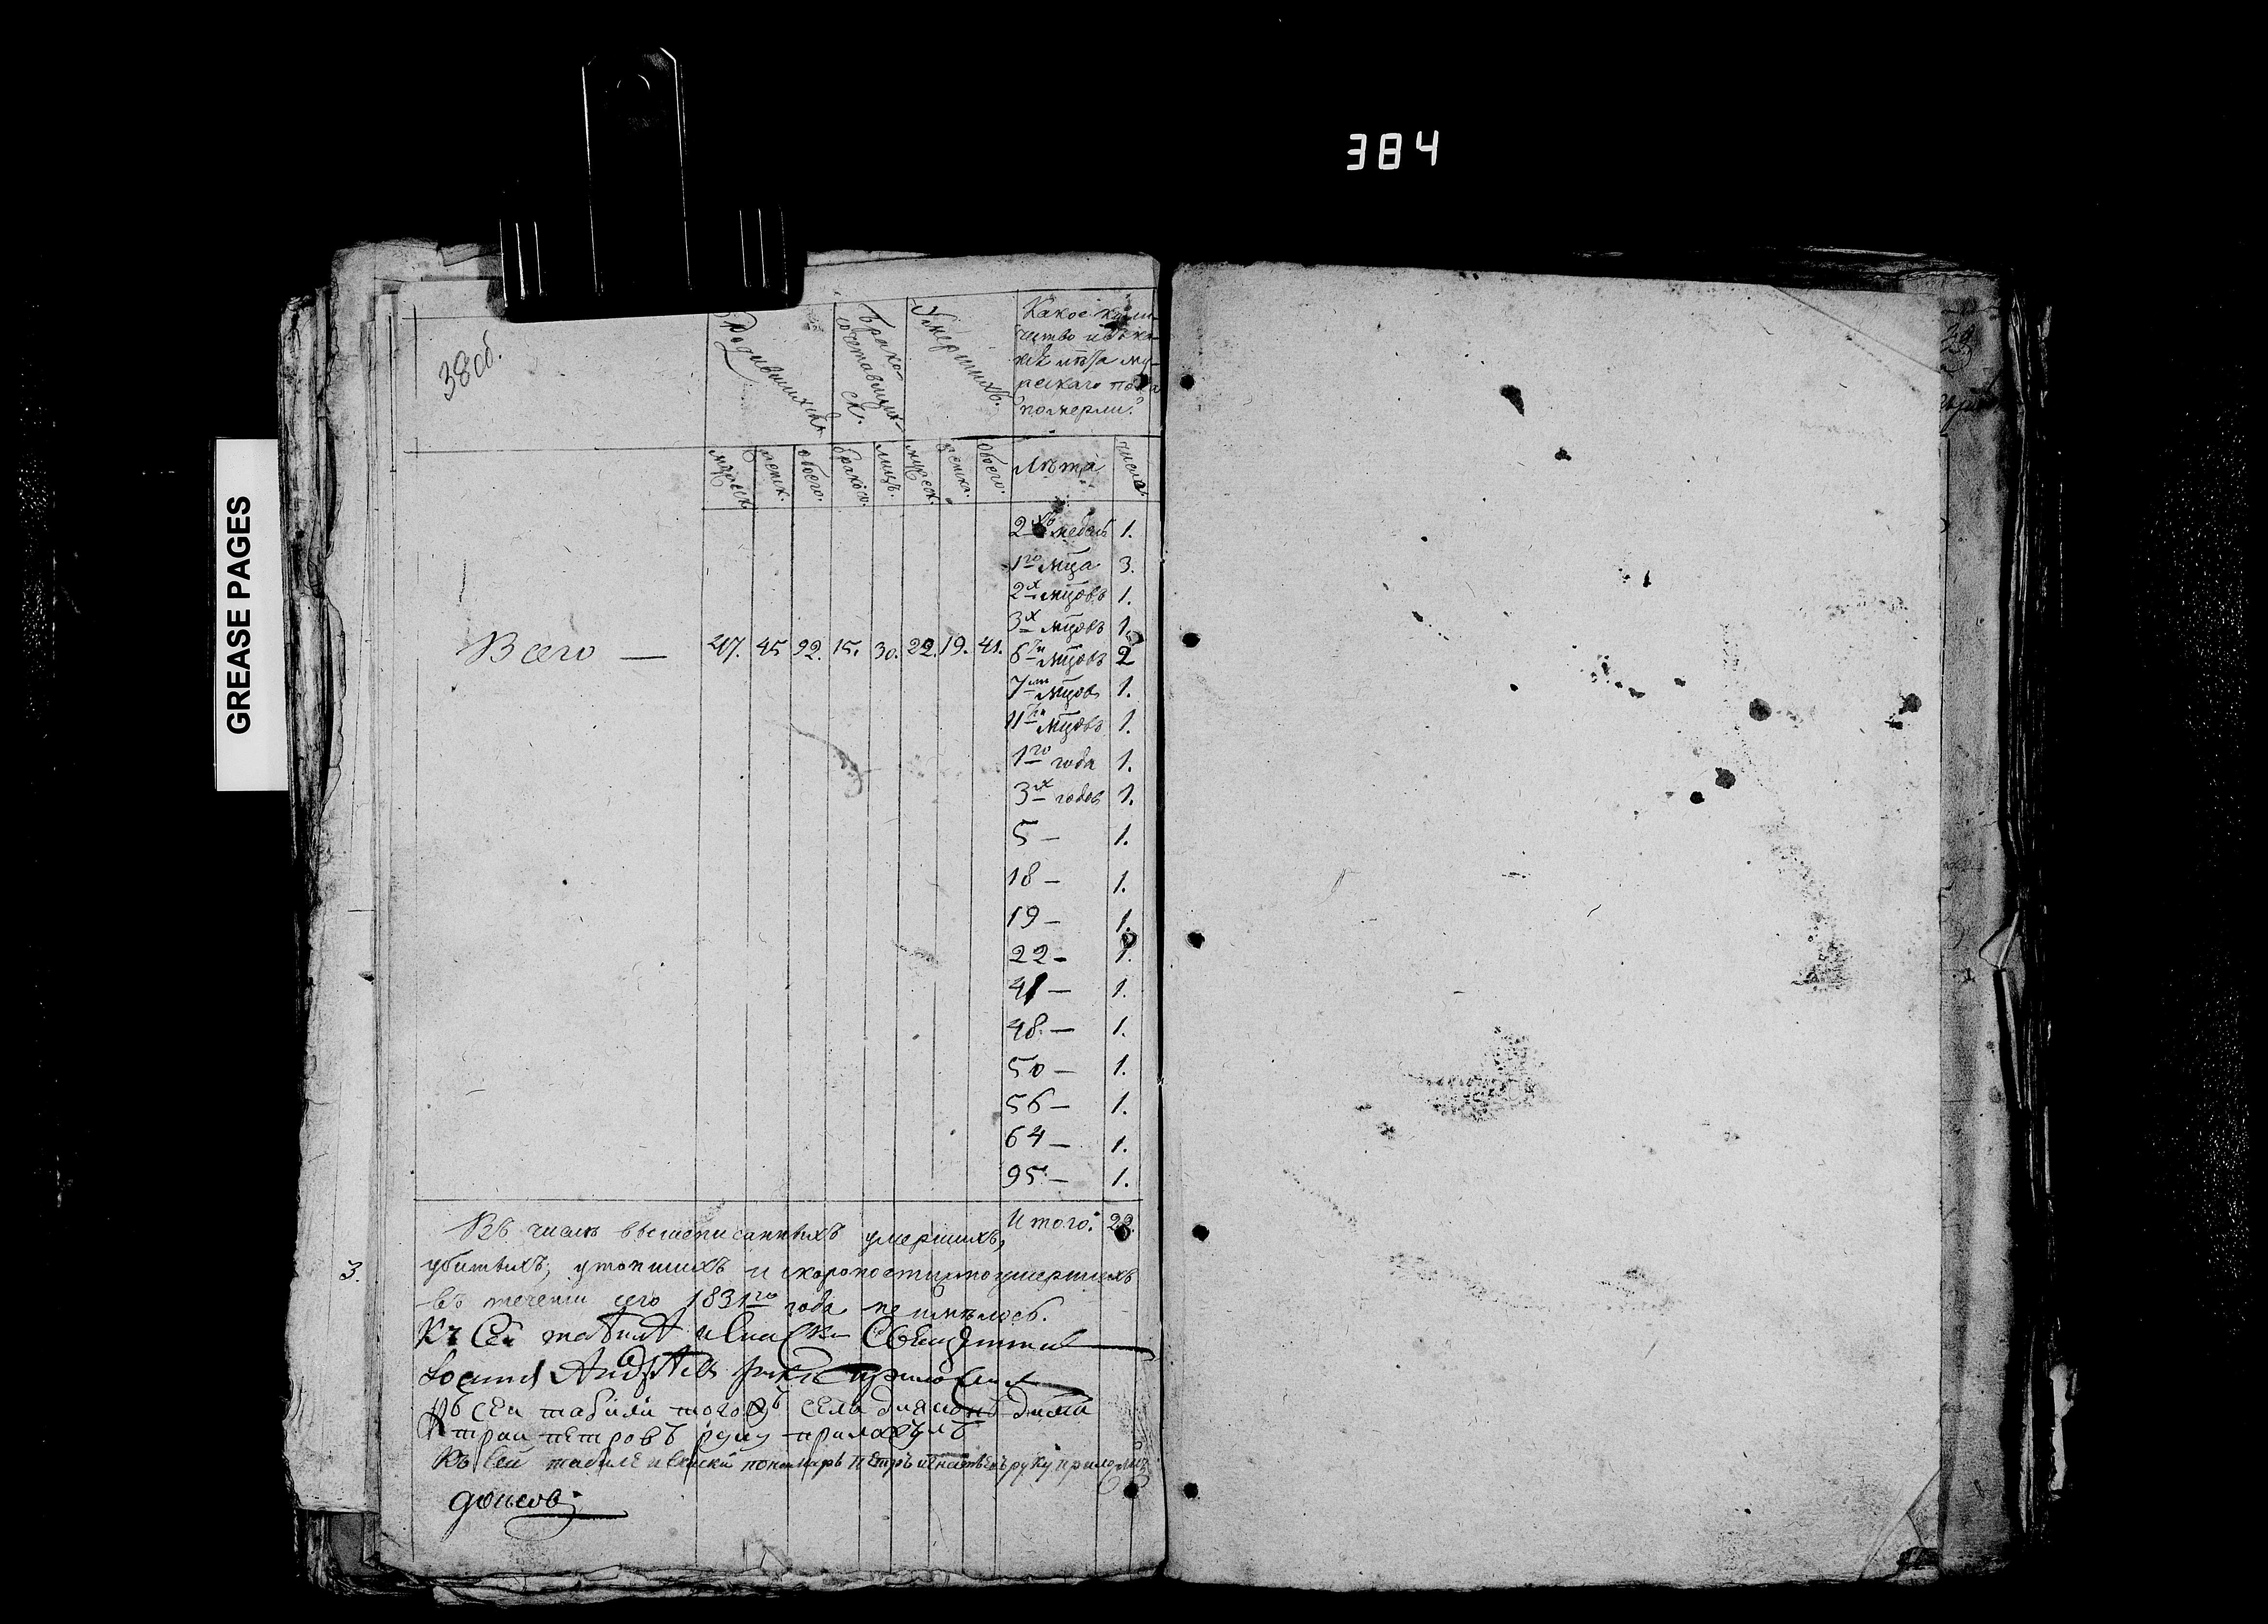 384
GREASE PAGES
38 об.
Родившихся
Брако-
сочетавших-
ся.
Умершихъ.
Какое коли-
чество и въ ка-
кіе лѣта му-
жескаго пола
померли?
мужеск.
женск.
обоего.
браковъ.
лицъ.
мужеск.
женск.
обоего.
Лѣта
число
2хъ недѣль 1.
1го мца 3.
2х мцовъ 1.
3х мцовъ 1.
Всего — 47. 45 92. 15. 30. 22. 19. 41. 6ти мцовъ 2
7ми мцов 1.
11ти мцовъ 1.
1го года 1.
3х годов 1.
5 — 1.
18 — 1.
19 — 1.
22 — 1.
41 — 1.
48 — 1.
50 — 1.
56 — 1.
64 — 1.
95 — 1.
Итого: 22.
Въ числѣ вышеписанныхъ умершихъ,
убитыхъ, утопшихъ и скоропостижно умершихъ
въ теченіи сего 1831го года не имѣлось.
3.
Къ сей Священникъ
руку приложилъ
Къ сей табели тогожъ села
петровъ руку приложилъ
Къ сей табели пономарь петръ руку приложилъ